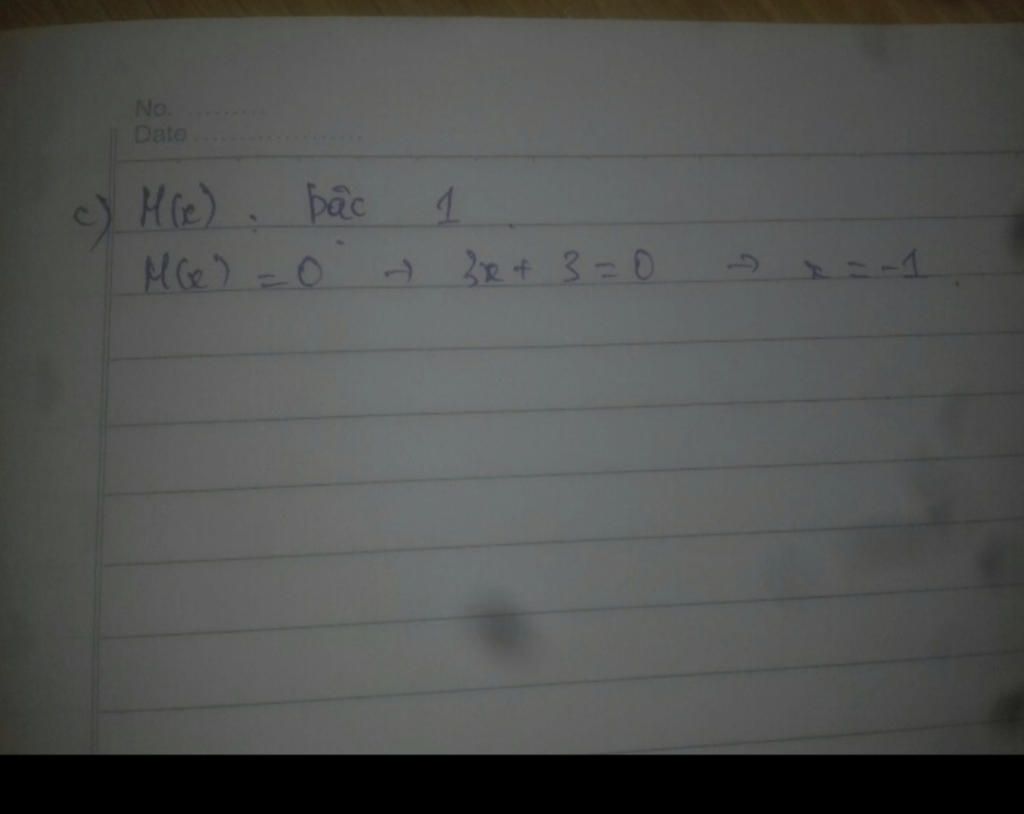 No. ..........
Date ....................
c) H(x) : bậc 1.
H(x) = 0 → 3x + 3 = 0 → x = -1.